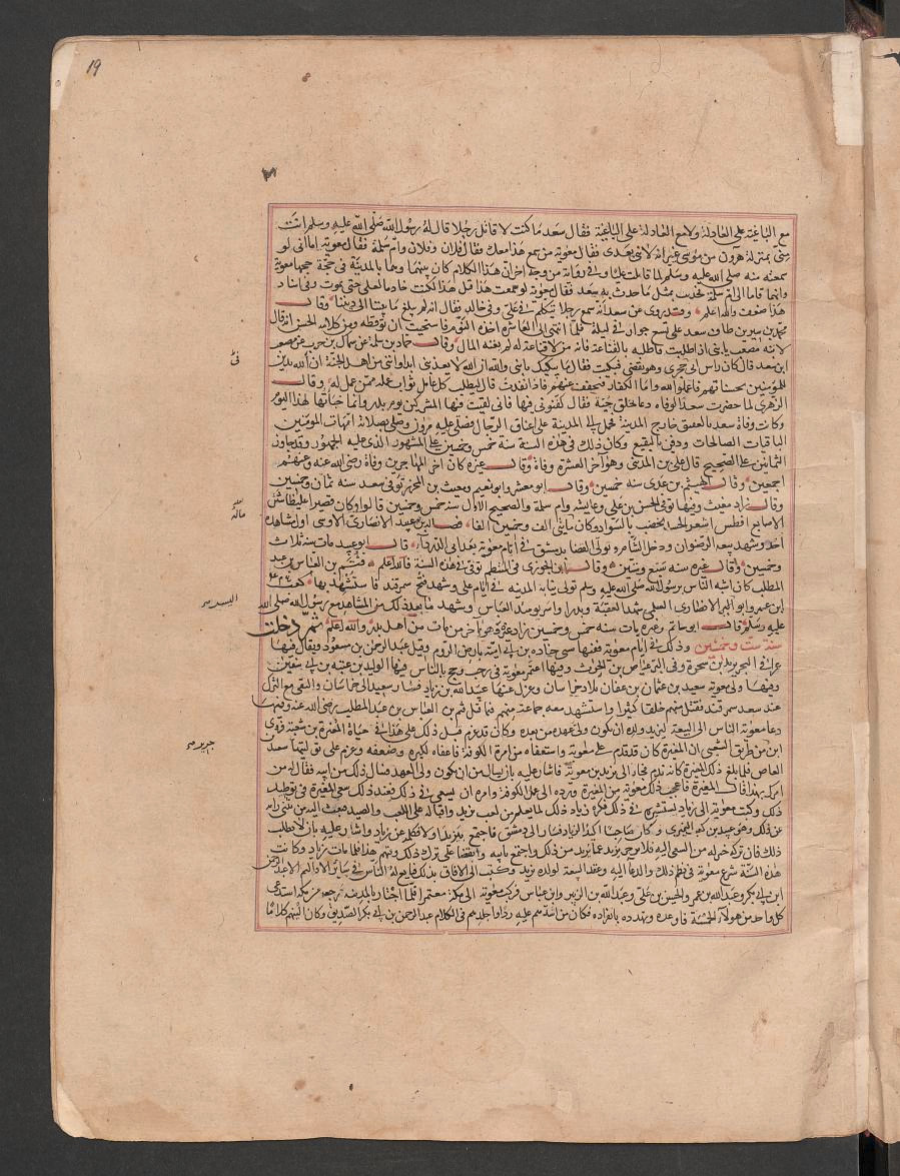 19
مع الباغية على العادلة ولا مع العادلة على الباغية فقال سعد ما كنت لاقاتل رجلا قال له رسول الله صلى الله عليه وسلم انت
منى بمنزلة هرون من موسى غير انه لا نبى بعدى فقال معوية من سمع هذا معك فقال فلان وفلان وام سلمة فقال معوية اما انى لو
سمعته منه صلى الله عليه وسلم لما قاتلت عليا وفى رواية من وجه اخر ان هذا الكلام كان بينهما وهما بالمدينة فى حجة حجها معوية
وانهما قاما الى ام سلمة فحدثت بمثل ما حدث به سعد فقال معوية لو سمعت هذا قبل هذا لكنت خادما لعلى حتى يموت وفى اسناد
هذا ضعف والله اعلم وقد روى عن سعد انه سمع رجلا يتكلم فى على وفى خالد فقال انه لم يبلغ ما بيننا الى ديننا وقال
محمد بن سيرين طاف سعد على تسع جوار فى ليلة فلما انتهى الى العاشرة اخذه النوم فاستحيت ان توقظه ومن كلامه الحسن انه قال
لابنه مصعب يا بنى اذا طلبت فاطلبه بالقناعة فانه من لا قناعة له لم يغنه المال وقال حماد بن سلمة عن سماك بن حرب عن مصعب
ابن سعد قال كان راس ابى فى حجرى وهو يقضى فبكيت فقال ما يبكيك يا بنى والله ان الله لا يعذبنى ابدا وانى من اهل الجنة ان الله يدين
للمؤمنين بحسناتهم فاعملوا لله واما الكفار فيخفف عنهم فاذا نفدت قال ليطلب كل عامل ثواب عمله ممن عمل له وقال
الزهرى لما حضرت سعدا الوفاة دعا بخلق جبة فقال كفنونى فيها فانى لقيت فيها المشركين يوم بدر وانما خبأتها لهذا اليوم
وكانت وفاة سعد بالعقيق خارج المدينة فحمل الى المدينة على اعناق الرجال فصلى عليه مروان وصلى بصلاته امهات المؤمنين
الباقيات الصالحات ودفن بالبقيع وكان ذلك فى هذه السنة سنة خمس وخمسين على المشهور الذى عليه الجمهور وقد جاوز
الثمانين على الصحيح قال على بن المدينى وهو آخر العشرة وفاة وقال غيره كان آخر المهاجرين وفاة رضى الله عنه وعنهم
اجمعين وقال الهيثم بن عدى سنة خمسين وقال ابو معشر وابو نعيم ومغيث بن المحرر توفى سعد سنة ثمان وخمسين
وقال زاد مغيث وفيها توفى الحسن بن على وعايشة وام سلمة والصحيح الاول سنة خمس وخمسين قالوا وكان قصيرا غليظا شثن
الاصابع افطس اشعر الجسد يخضب بالسواد وكان ميراثه مايتى الف وخمسين الفا فضالة بن عبيد الانصارى الاوسى اول مشاهده
احد وشهد بيعة الرضوان ودخل الشام وتولى القضا بدمشق فى ايام معوية بعد ابى الدرداء قال ابو عبيد مات سنة ثلاث
وخمسين وقال غيره سنة سبع وستين وقال ابن الجوزى فى المنتظم توفى فى هذه السنة فالله اعلم قثم بن العباس بن عبد
المطلب كان اشبه الناس برسول الله صلى الله عليه وسلم تولى نيابة المدينة فى ايام على وشهد فتح سمرقند فاستشهد بها كعب
ابن عمرو ابو اليسر الانصارى السلمى شهد العقبة وبدرا واسر يومئذ العباس وشهد ما بعد ذلك من المشاهد مع رسول الله صلى الله
عليه وسلم قال ابو حاتم وغيره مات سنة خمس وخمسين زاد غيره وهو آخر من مات من اهل بدر والله اعلم ثم دخلت
سنة ست وخمسين وذلك فى ايام معوية ففيها شتى جنادة بن ابى امية بارض الروم وقيل عبد الرحمن بن مسعود ويقال فيها
غزا فى البحر يزيد بن سمرة وفى البر عياض بن الحرث وفيها اعتمر معوية فى رجب وحج بالناس فيها الوليد بن عتبة بن ابى سفين
وفيها ولى معوية سعيد بن عثمان بن عفان بلاد خراسان وعزل عنها عبيد الله بن زياد فسار سعيد الى خراسان والتقى مع الترك
عند سغد سمرقند فقتل منهم خلقا كثيرا واستشهد معه جماعة منهم فيما قيل قثم بن العباس بن عبد المطلب رضى الله عنه وفيها
دعا معوية الناس الى البيعة ليزيد ولده ان يكون ولى عهده من بعده وكان قد عزم قبل ذلك على هذا فى حياة المغيرة بن شعبة فروى
ابن جرير من طريق الشعبى ان المغيرة كان قد قدم على معوية واستعفاه من امرة الكوفة فاعفاه لكبره وضعفه وعزم على توليتها سعيد بن
العاص فلما بلغ ذلك المغيرة كانه ندم فجاء الى يزيد بن معوية فاشار عليه بان يسال من ابيه ان يكون ولى العهد فسال ذلك من ابيه فقال له من
امرك بهذا قال المغيرة فاعجب ذلك معوية من المغيرة ورده الى عمل الكوفة وامره ان يسعى فى ذلك فعند ذلك سعى المغيرة فى توطيد
ذلك وكتب معوية الى زياد يستشيره فى ذلك فكره زياد ذلك لما يعلم من لعب يزيد واقباله على اللعب والصيد فبعث اليه من يثنى رايه
عن ذلك وهو عبيد بن كعب النميرى وكان صاحبا اكيدا لزياد فسار الى دمشق فاجتمع بيزيد اولا فكلمه عن زياد واشار عليه بان لا يطلب
ذلك فان تركه خير له من السعى اليه فانزجر يزيد عما يريد من ذلك واجتمع بابيه واتفقا على ترك ذلك فى وقتهم هذا فلما مات زياد وكانت
هذه السنة شرع معوية فى نظم ذلك والدعا اليه وعقد البيعة لولده يزيد وكتب الى الآفاق بذلك فبايع له الناس فى ساير الاقاليم الا عبد الرحمن
ابن ابى بكر وعبد الله بن عمر والحسين بن على وعبد الله بن الزبير وابن عباس فركب معوية الى مكة معتمرا فلما اجتاز بالمدينة مرجعه من مكة استدعى
كل واحد من هولاء الخمسة فاوعده وتهدده بانفراده فكان من اشدهم عليه ردا واجلدهم فى الكلام عبد الرحمن بن ابى بكر الصديق وكان الينهم كلاما